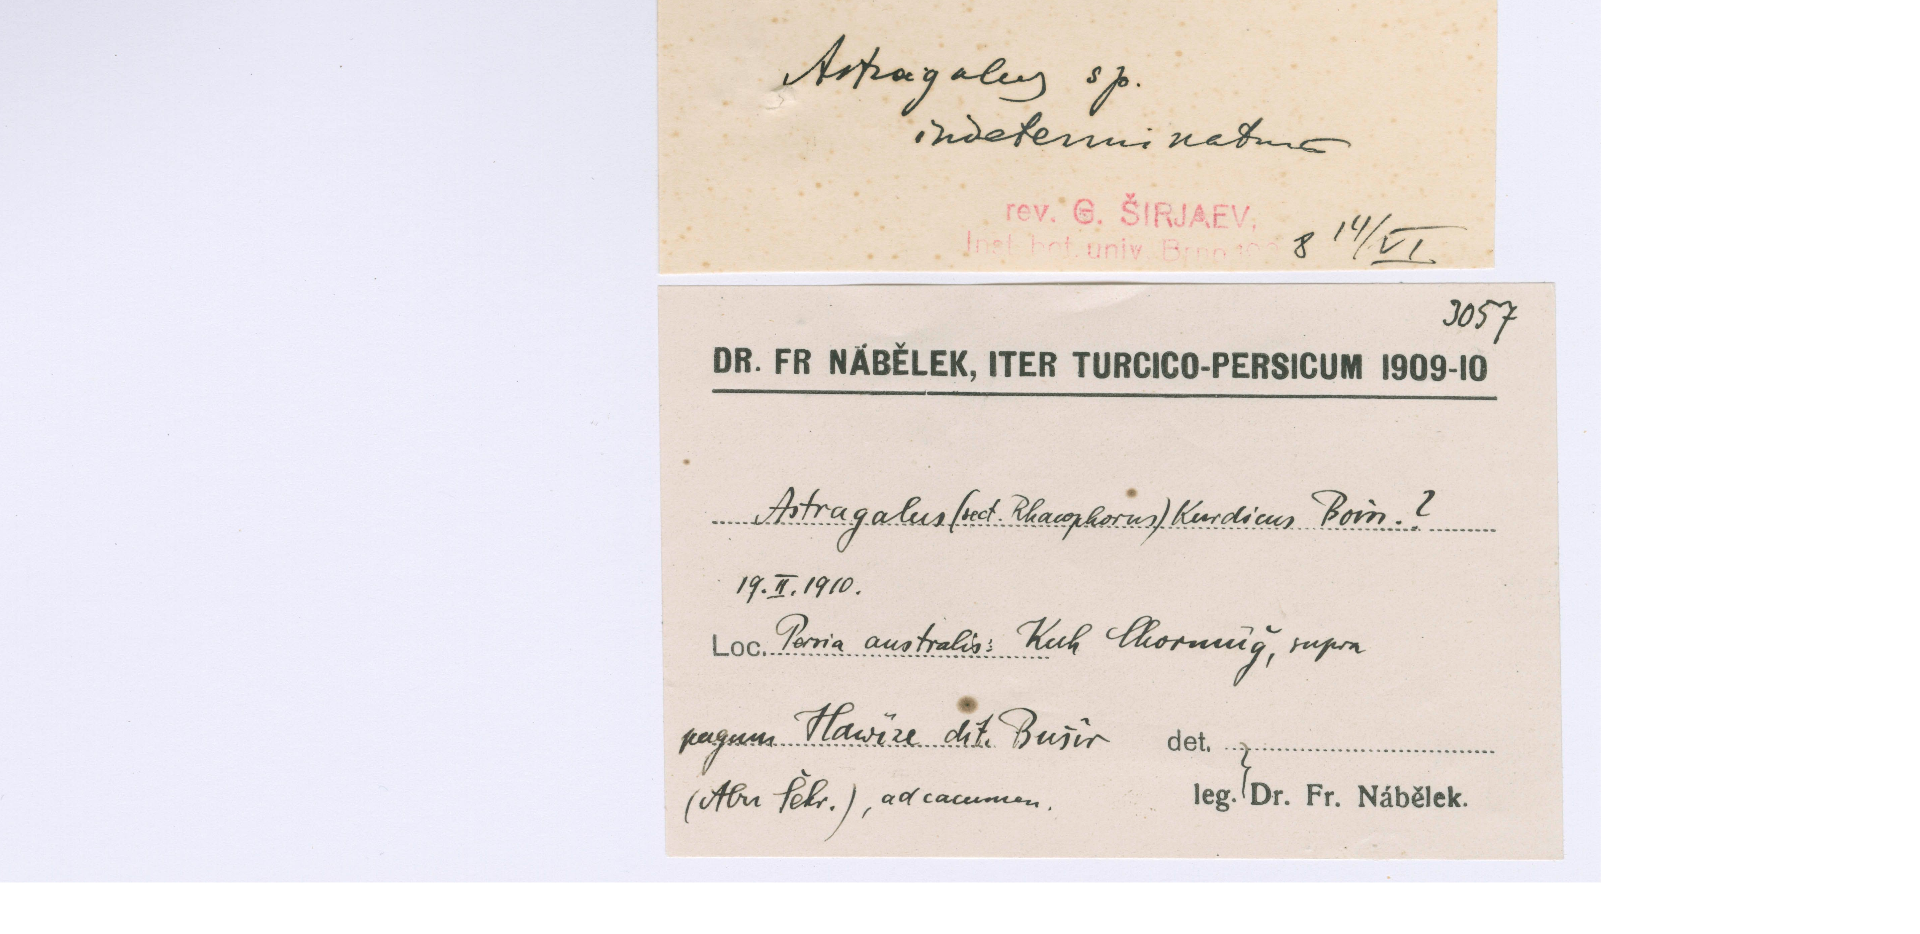 Astragalus sp.
indeterminatus
rev. G. ŠIRJAEV,
Inst. bot. univ. Brno 193 8 14/VI
3057
DR. FR NÁBĚLEK, ITER TURCICO-PERSICUM 1909-10
Astragalus (sect. Rhacophorus) Kurdicus Boiss. ?
19. II. 1910.
Loc. Persia australis: Kuh Chormüğ, supra
pagum Hawize dit. Bušir det.
(Abu Šehr.), ad cacumen. leg. Dr. Fr. Nábělek.